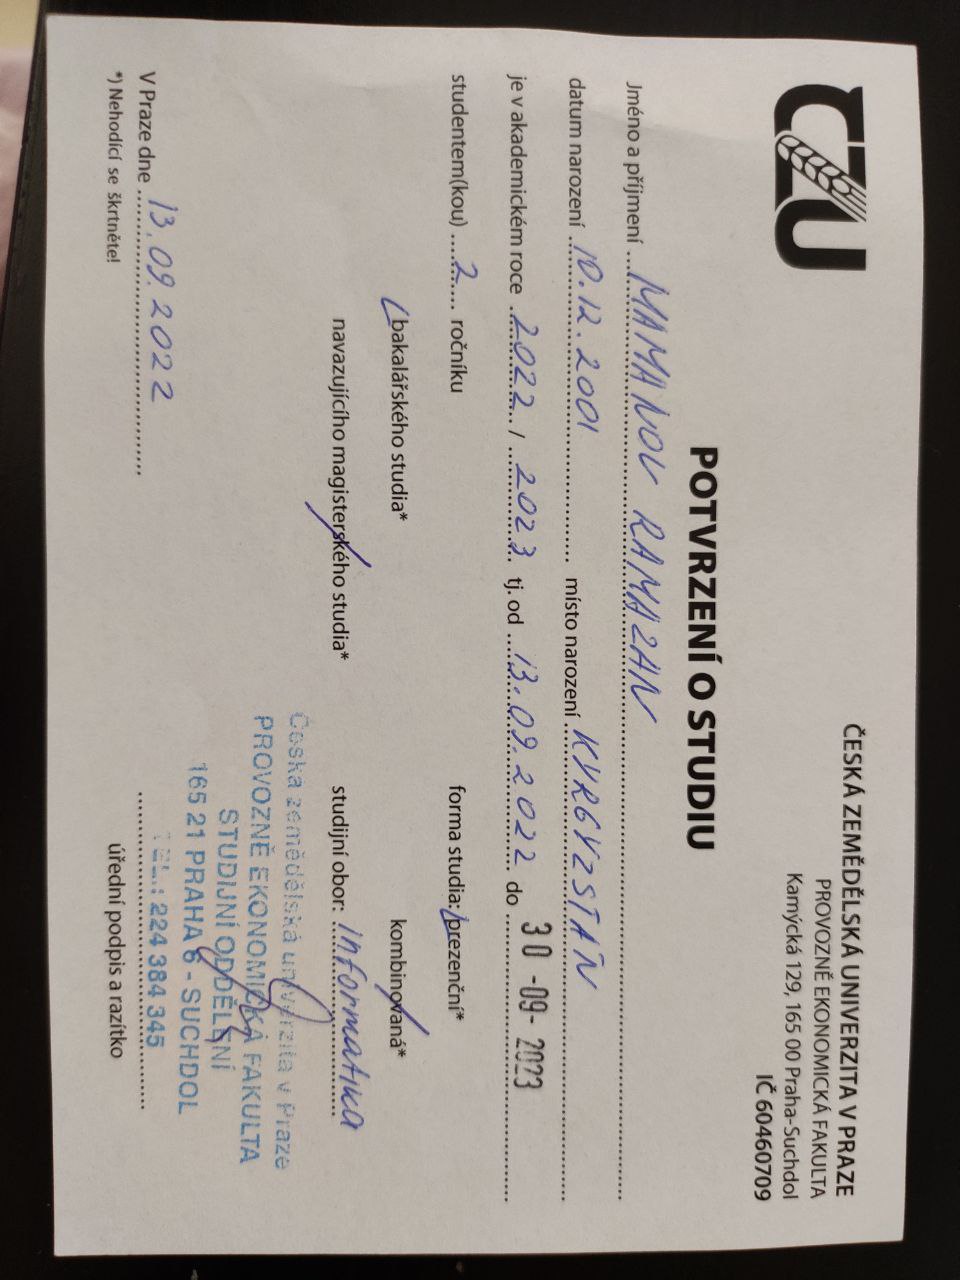 ČZU
ČESKÁ ZEMĚDĚLSKÁ UNIVERZITA V PRAZE
PROVOZNĚ EKONOMICKÁ FAKULTA
Kamýcká 129, 165 00 Praha-Suchdol
IČ 60460709
POTVRZENÍ O STUDIU
Jméno a příjmení MAMANOV RAMAZAN
datum narození 10.12.2001 místo narození KYRGYZSTÁN
je v akademickém roce 2022 / 2023 tj. od 13.09.2022 do 30-09-2023
studentem(kou) 2 ročníku forma studia: prezenční*
bakalářského studia* kombinovaná*
navazujícího magisterského studia* studijní obor: informatika
Česká zemědělská univerzita v Praze
PROVOZNĚ EKONOMICKÁ FAKULTA
STUDIJNÍ ODDĚLENÍ
165 21 PRAHA 6 - SUCHDOL
TEL.: 224 384 345
V Praze dne 13.09.2022
úřední podpis a razítko
*) Nehodící se škrtněte!